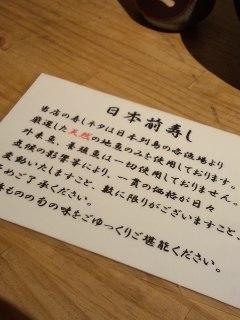 日本前寿し
当店の寿しネタは日本列島の各漁港より
厳選した天然の地魚のみを使用しております。
外来魚、養殖魚は一切使用しておりません。
気候の影響等により、一貫の価格が日々
変動いたしますこと、数に限りがございますこと、
予めご了承ください。
本もののあの味をごゆっくりご堪能ください。